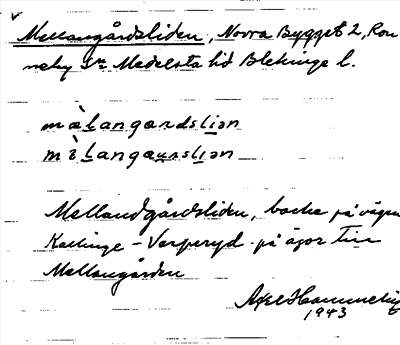 Mellangårdsliden, Norra Bygget 2, Ron
neby sn Medelsta hd Blekinge l.
màlangardsliən
mìlangaursliən
Mellandgårdsliden, backe på vägen
Kallinge - Värperyd på ägor till
Mellangården
Axel Hammeling
1943